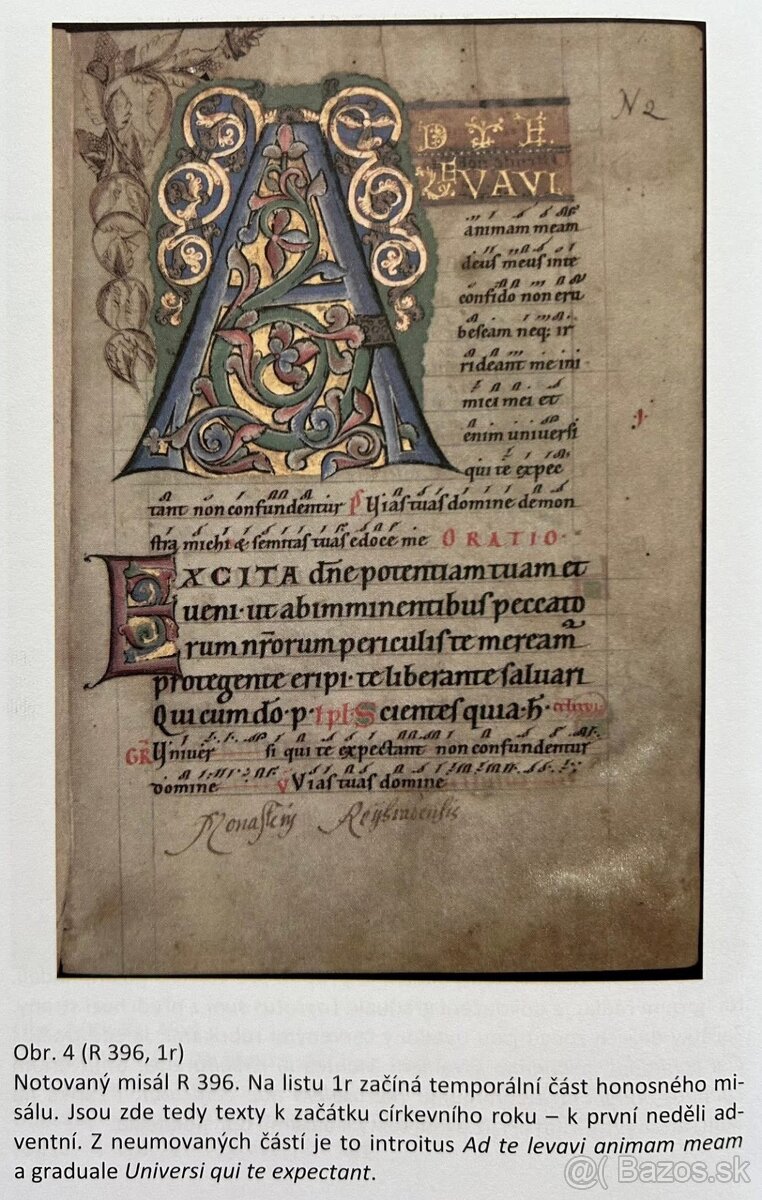 N 2
A D TE
LEVAVI
animam meam
deus meus in te
confido non eru
bescam neq; ir
rideant me ini
mici mei et
enim universi
qui te expec
tant non confundentur Ps Vias tuas domine demon
stra michi & semitas tuas edoce me ORATIO.
EXCITA dñe potentiam tuam et
ueni. ut ab imminentibus peccato
rum nr̄orum periculis te meream̄
protegente eripi. te liberante saluari
Qui cum dō. p. Scientes quia. h̄.
GR̄ Vniuer si qui te expectant non confundentur
domine V Vias tuas domine
Monasterij
Obr. 4 (R 396, 1r)
Notovaný misál R 396. Na listu 1r začíná temporální část honosného mi-
sálu. Jsou zde tedy texty k začátku církevního roku – k první neděli ad-
ventní. Z neumovaných částí je to introitus Ad te levavi animam meam
a graduale Universi qui te expectant.
@( Bazos.sk